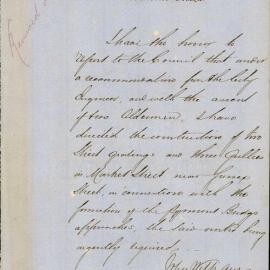 I have the honor to
report to the Council that under
a recommendation from the City
Engineer, and with the assent
of two Aldermen, I have
directed the construction of two
Street gratings and three Gullies
in Market Street near Sussex
Street, in connection with the
formation of the Pyrmont Bridge
approaches, the said works being
urgently required